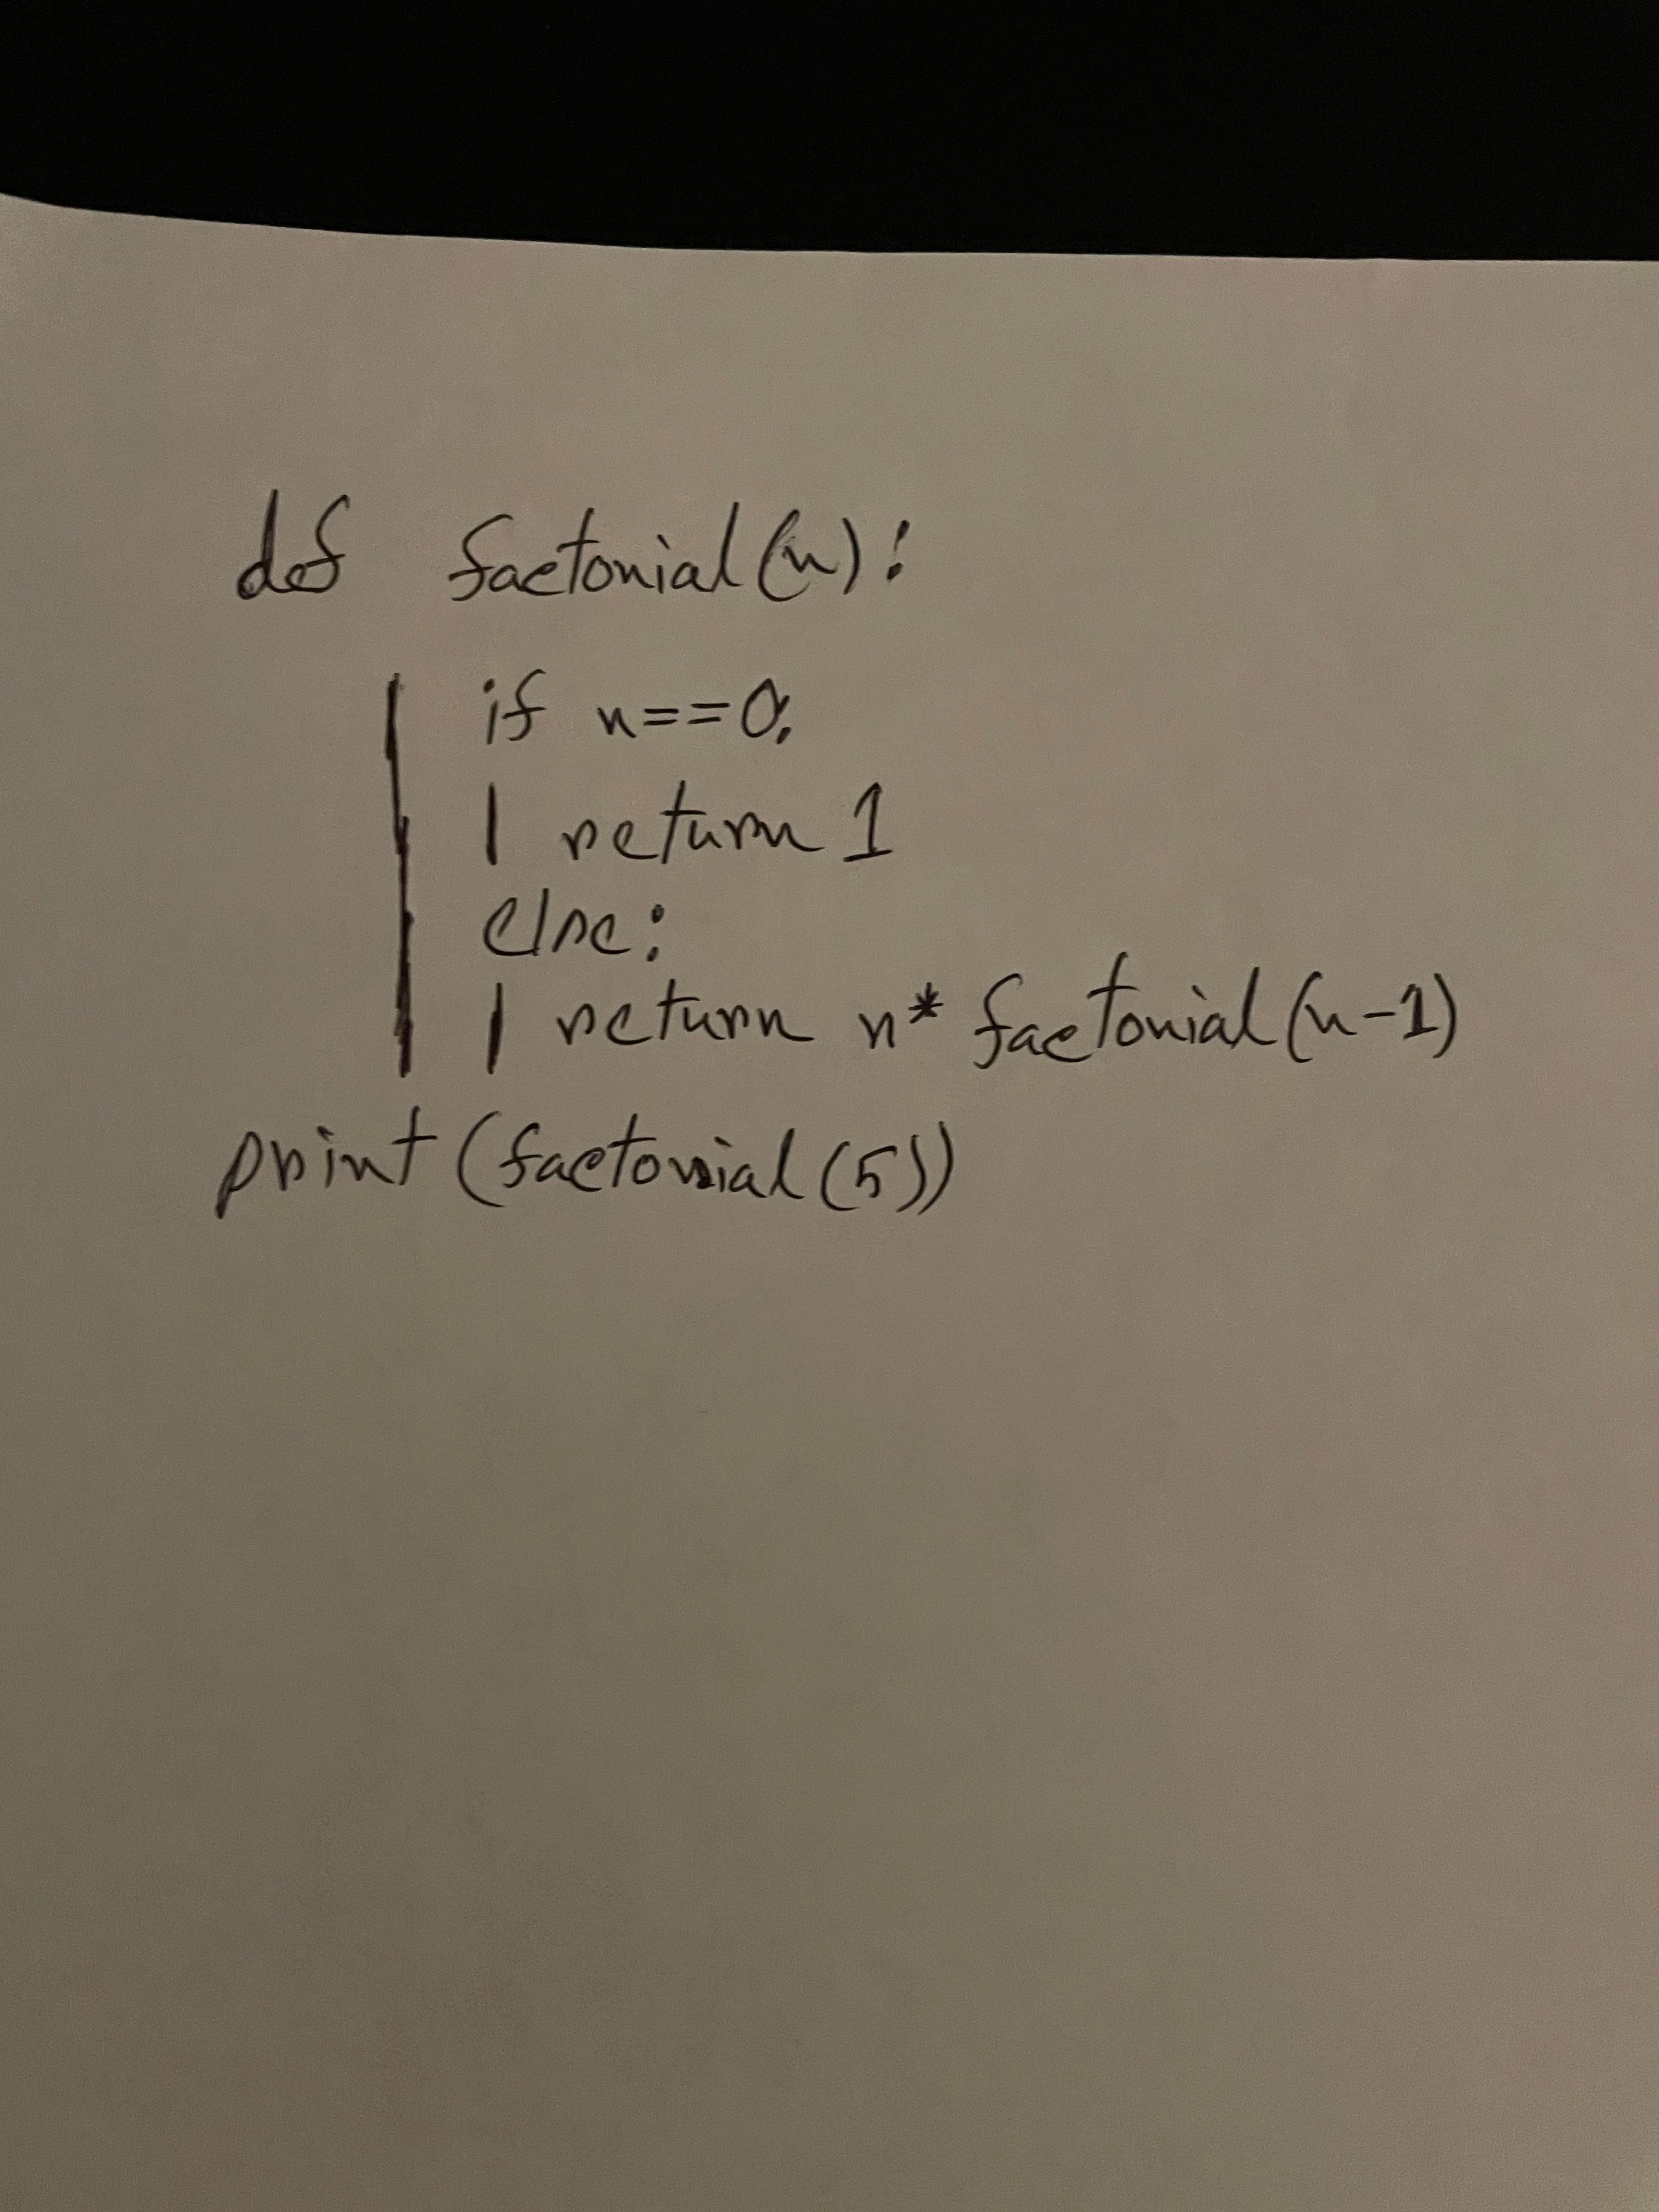 def factorial(n):
if n==0:
| return 1
else:
| return n* factorial(n-1)
print(factorial(5))